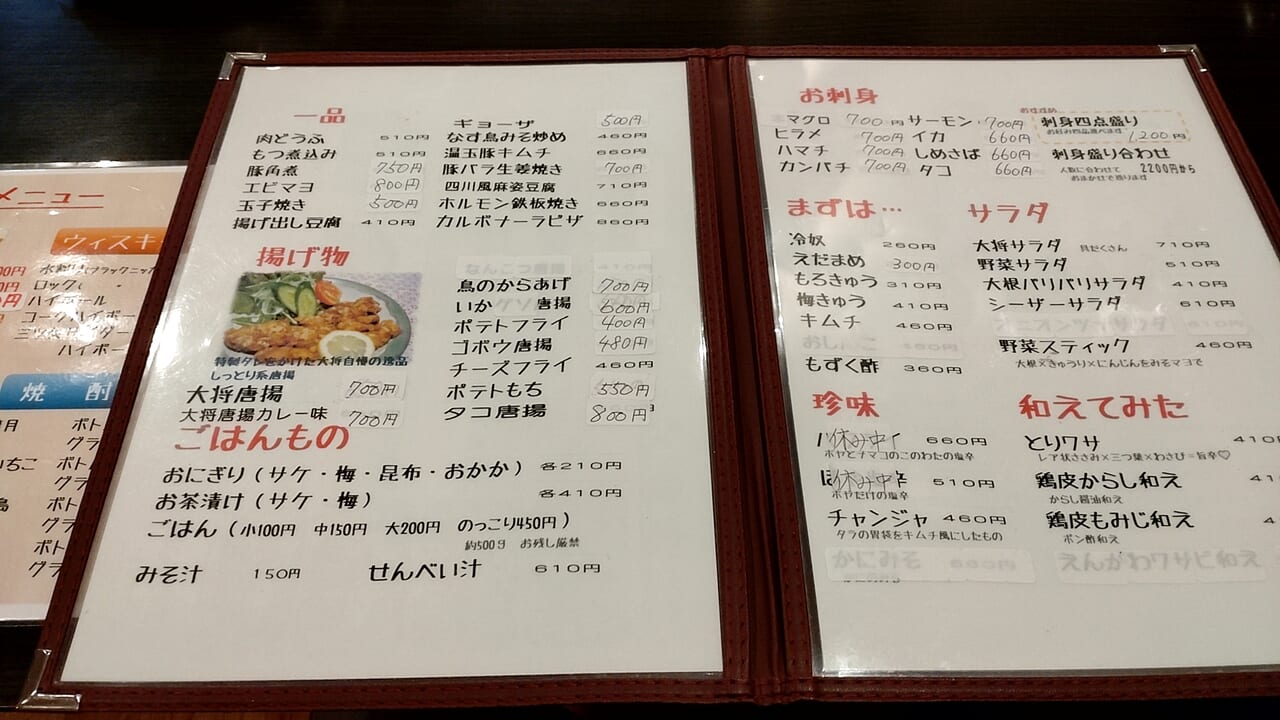 メニュー
ウィスキ
ロック
ハイボール
ハイボー
焼酎
ボト
グラ
ボト
グラ
ボト
グラ
ボト
グラ
一品
肉どうふ 510円
もつ煮込み 510円
豚角煮 750円
エビマヨ 800円
玉子焼き 500円
揚げ出し豆腐 410円
ギョーザ 500円
なす鳥みそ炒め 460円
温玉豚キムチ 660円
豚バラ生姜焼き 700円
四川風麻姿豆腐 710円
ホルモン鉄板焼き 660円
カルボナーラピザ 860円
揚げ物
特製ダレをかけた大将自慢の逸品
しっとり系唐揚
大将唐揚 700円
大将唐揚カレー味 700円
なんこつ唐揚 410円
鳥のからあげ 700円
いか 唐揚 600円
ポテトフライ 400円
ゴボウ唐揚 480円
チーズフライ 460円
ポテトもち 550円
タコ唐揚 800円
ごはんもの
おにぎり（サケ・梅・昆布・おかか） 各210円
お茶漬け（サケ・梅） 各410円
ごはん（小100円 中150円 大200円 のっこり450円）
約500g お残し厳禁
みそ汁 150円 せんべい汁 610円
お刺身
マグロ 700円 サーモン 700円
ヒラメ 700円 イカ 660円
ハマチ 700円 しめさば 660円
カンパチ 700円 タコ 660円
おすすめ
刺身四点盛り
お好み四品選べます 1,200円
刺身盛り合わせ
人数に合わせて 2200円から
おまかせで造ります
まずは…
冷奴 260円
えだまめ 300円
もろきゅう 310円
梅きゅう 410円
キムチ 460円
もずく酢 360円
サラダ
大将サラダ 具だくさん 710円
野菜サラダ 510円
大根パリパリサラダ 410円
シーザーサラダ 610円
オニオンツナサラダ 610円
野菜スティック 460円
大根×きゅうり×にんじんをみそマヨで
珍味
休み中 660円
ホヤとナマコのこのわたの塩辛
休み中 510円
ホヤだけの塩辛
チャンジャ 460円
タラの胃袋をキムチ風にしたもの
かにみそ 660円
和えてみた
とりワサ 410
レア状ささみ×三つ葉×わさび=旨辛♡
鶏皮からし和え 41
からし醤油和え
鶏皮もみじ和え 4
ポン酢和え
えんがわワサビ和え